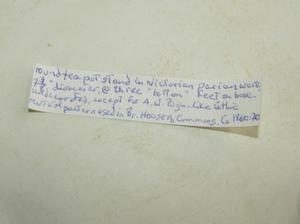 round teapot stand in Victorian parian ware
7½" diameter, @ three "button" feet on base.
Undecorated, except for A.W. Pugin-like Gothic
revival pattern used in Br. Houses of Commons. Ca 1860-70